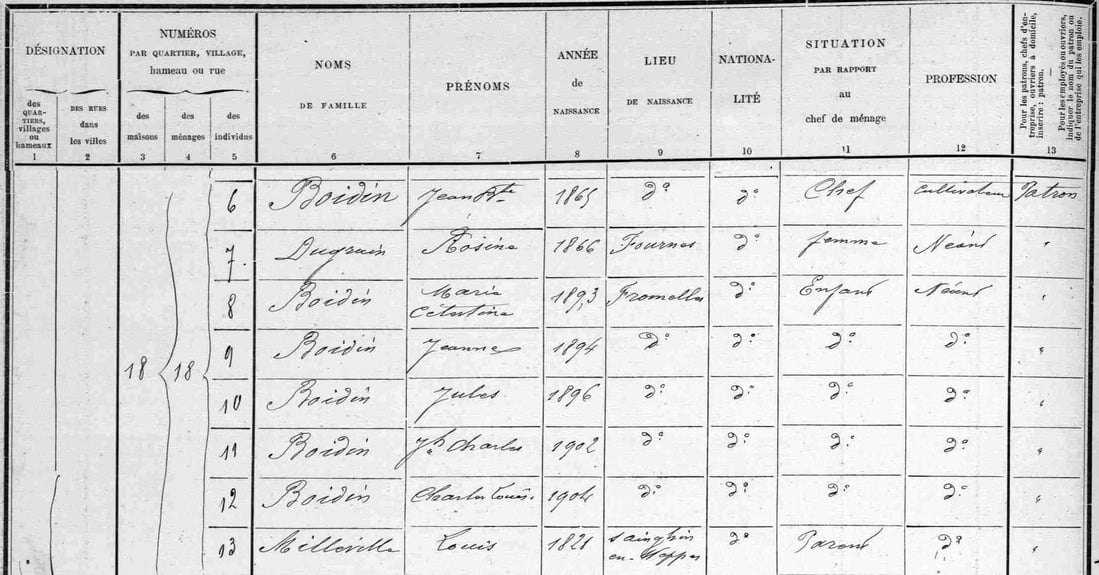 DÉSIGNATION
des QUAR-TIERS, villages ou hameaux
DES RUES dans les villes
NUMÉROS
PAR QUARTIER, VILLAGE,
hameau ou rue
des maisons
des ménages
des individus
NOMS
DE FAMILLE
PRÉNOMS
ANNÉE
de
NAISSANCE
LIEU
DE NAISSANCE
NATIONA-
LITÉ
SITUATION
PAR RAPPORT
au
chef de ménage
PROFESSION
Pour les patrons, chefs d'en-
treprise, ouvriers à domicile,
inscrire : patron.
—
Pour les employés ou ouvriers,
indiquer le nom du patron ou
de l'entreprise qui les emploie.
1 2 3 4 5 6 7 8 9 10 11 12 13
6 Boidin Jean Bte 1865 do do Chef cultivateur Patron
7 Rosine 1866 Fournes do femme Néant "
8 Boidin Marie Célestine 1893 Fromelles do Enfant Néant "
18 18 9 Boidin Jeanne 1894 do do do do "
10 Boidin Jules 1896 do do do do "
11 Boidin Jh Charles 1902 do do do do "
12 Boidin Charles Louis 1904 do do do do "
13 Milleville Louis 1821 sainghin en-Weppes do Parent do "